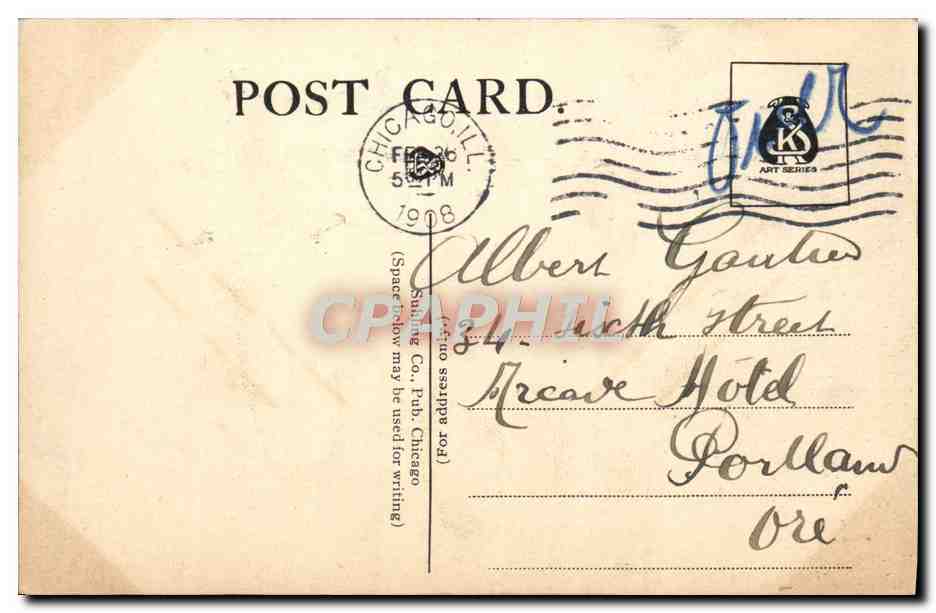 POST CARD.
CHICAGO, ILL.
FEB 26
5 PM
1908
S & K
ART SERIES
Albert Gautier
34. sixth street
Arcade Hotel
Portland
Ore
(For address only.)
Suhling Co., Pub. Chicago
(Space below may be used for writing)
CPAPHIL